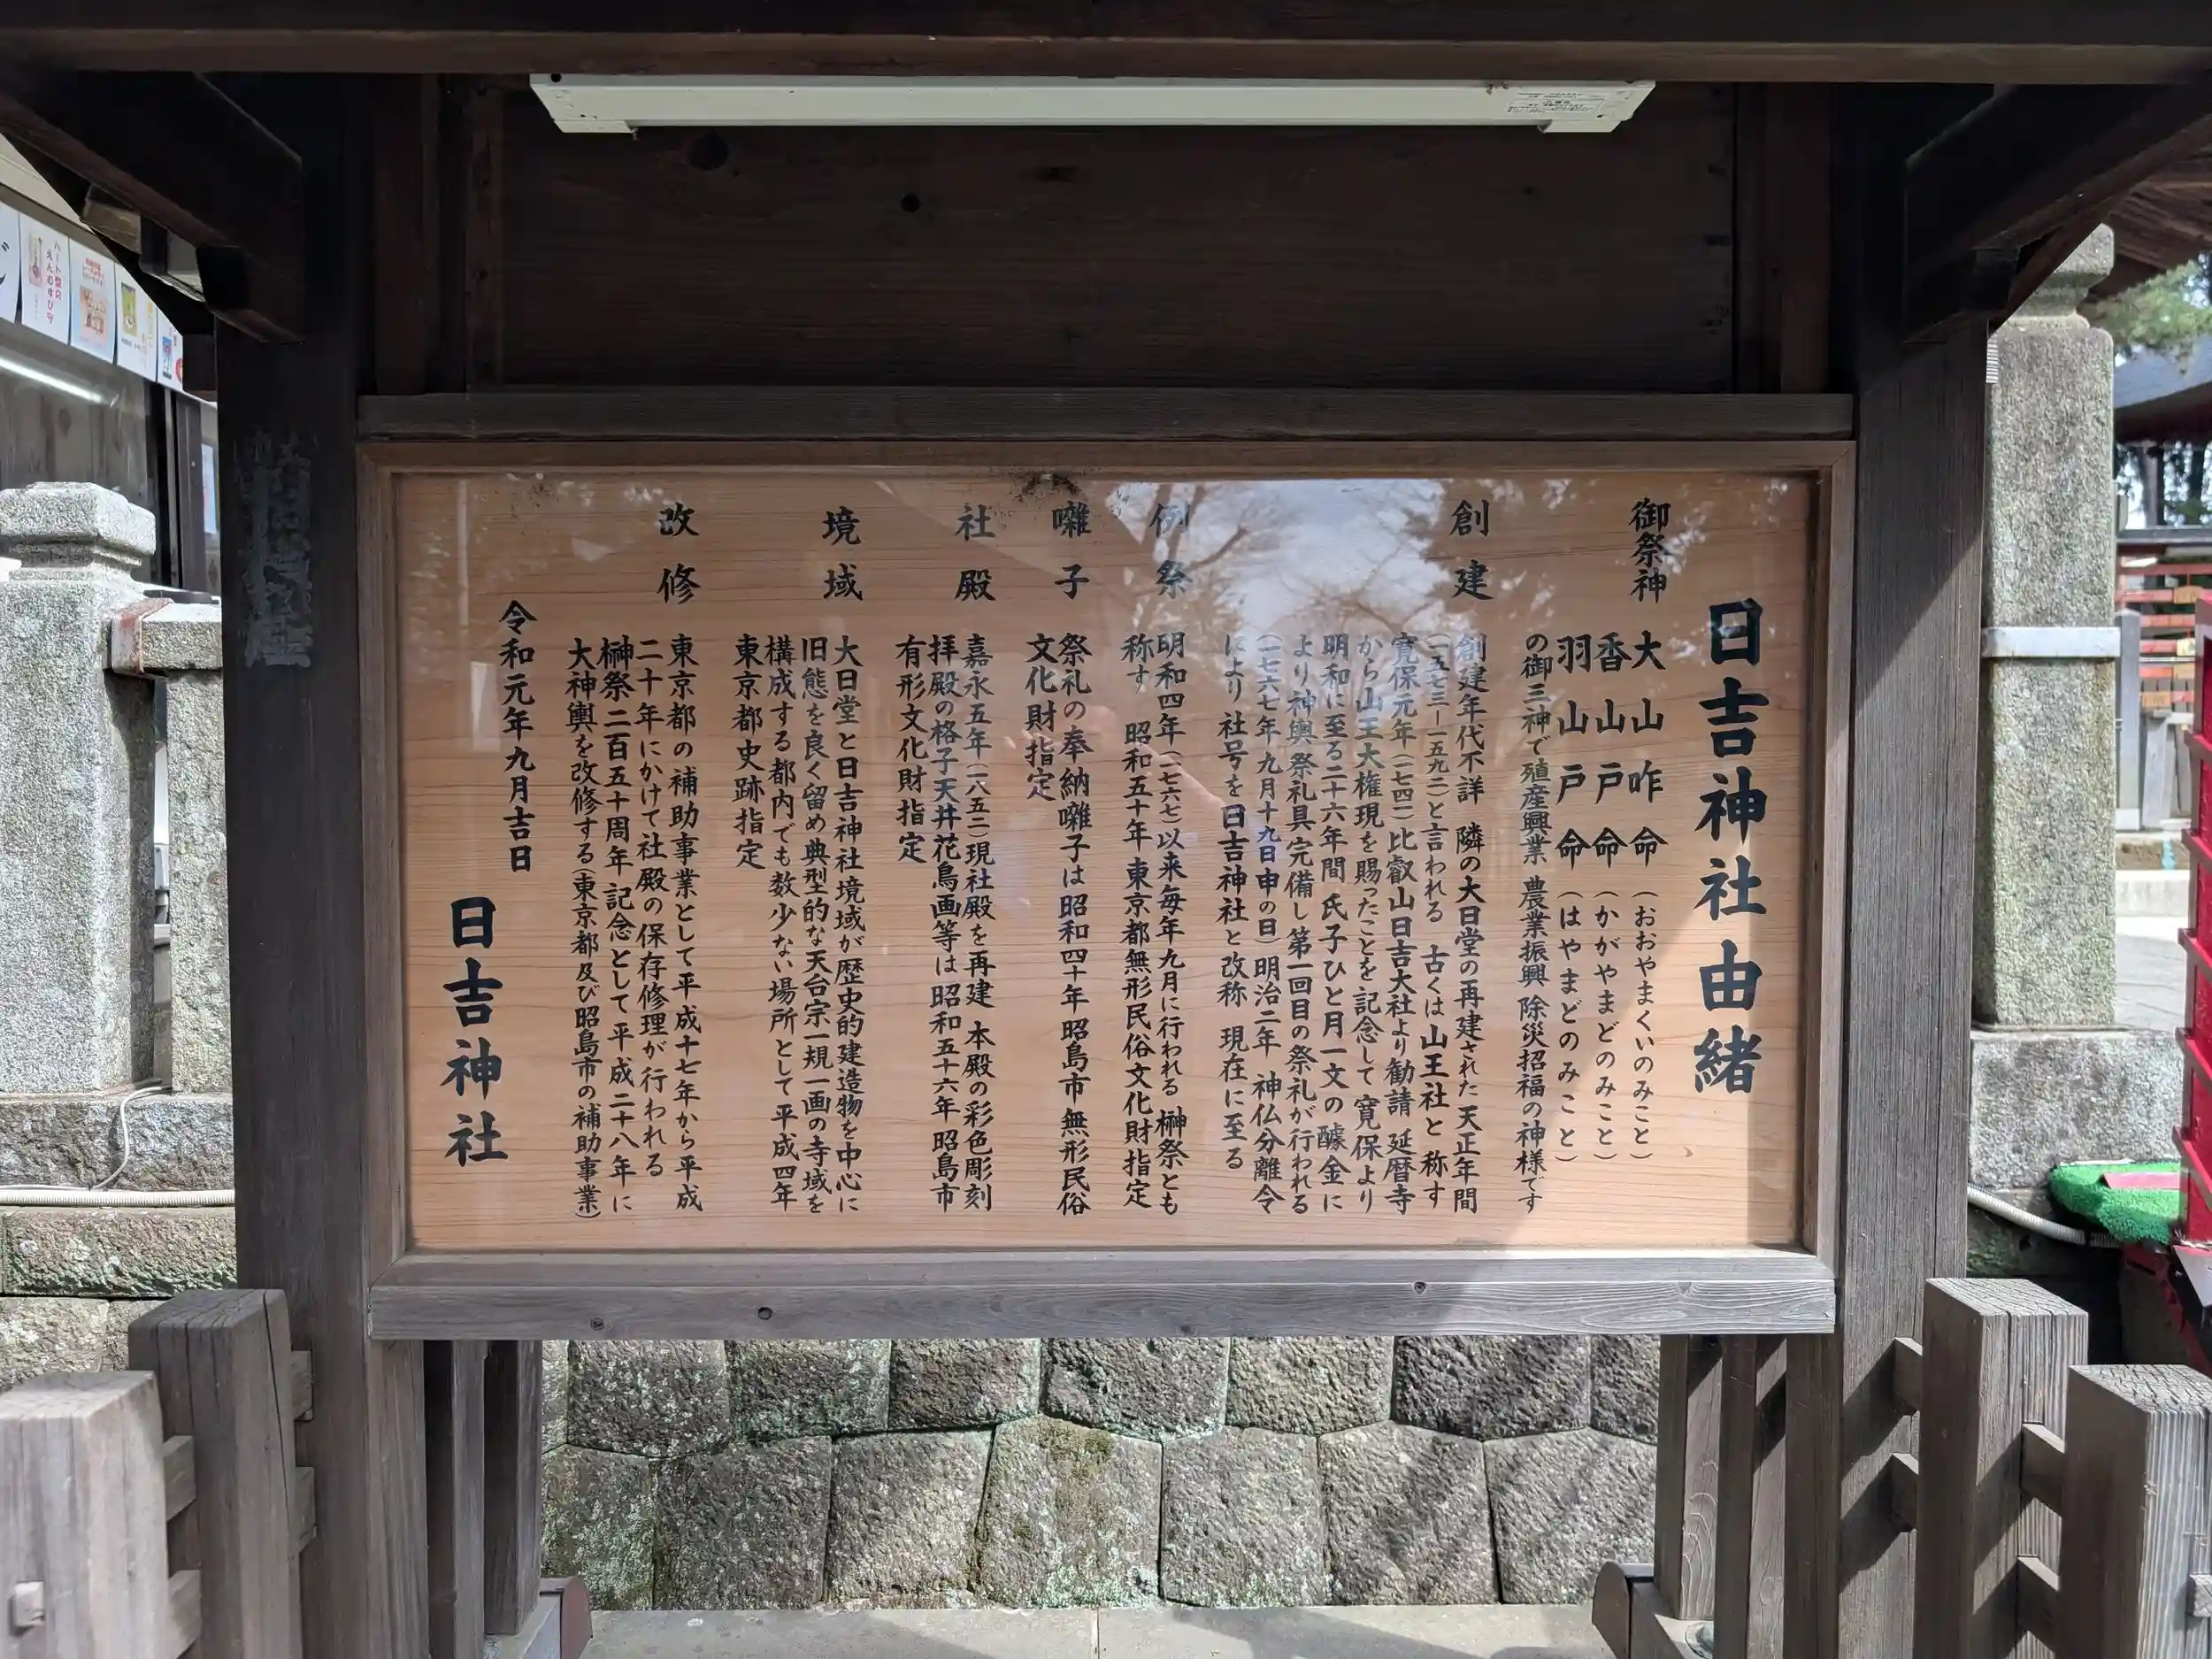 日吉神社由緒
御祭神
大山咋命（おおやまくいのみこと）
香山戸命（かがやまどのみこと）
羽山戸命（はやまどのみこと）
の御三神で殖産興業 農業振興 除災招福の神様です
創建
創建年代不詳 隣の大日堂の再建された天正年間
（一五七三ー一五九二）と言われる 古くは山王社と称す
寛保元年（一七四一）比叡山日吉大社より勧請 延暦寺
から山王大権現を賜ったことを記念して寛保より
明和に至る二十六年間 氏子ひと月一文の醵金に
より神輿祭礼具完備し第一回目の祭礼が行われる
（一七六七年九月十九日申の日）明治二年 神仏分離令
により社号を日吉神社と改称 現在に至る
例祭
明和四年（一七六七）以来毎年九月に行われる 榊祭とも
称す 昭和五十年 東京都無形民俗文化財指定
囃子
祭礼の奉納囃子は昭和四十年昭島市無形民俗
文化財指定
社殿
嘉永五年（一八五二）現社殿を再建 本殿の彩色彫刻
拝殿の格子天井花鳥画等は昭和五十六年昭島市
有形文化財指定
境域
大日堂と日吉神社境域が歴史的建造物を中心に
旧態を良く留め典型的な天台宗一規一画の寺域を
構成する都内でも数少ない場所として平成四年
東京都史跡指定
改修
東京都の補助事業として平成十七年から平成
二十年にかけて社殿の保存修理が行われる
榊祭二百五十周年記念として平成二十八年に
大神輿を改修する（東京都及び昭島市の補助事業）
令和元年九月吉日
日吉神社
ハート型の
えんむすび守